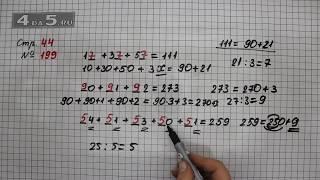 4DA5.RU
Стр. 44
№ 199
17 + 37 + 57 = 111
10+30+50+3x = 90+21
111 = 90+21
21:3=7
90 + 91 + 92 = 273
273 = 270+3
90+90+1+90+2 = 90·3+3=270+3
27:3=9
54 + 51 + 53 + 50 + 51 = 259
259=250+9
25:5=5